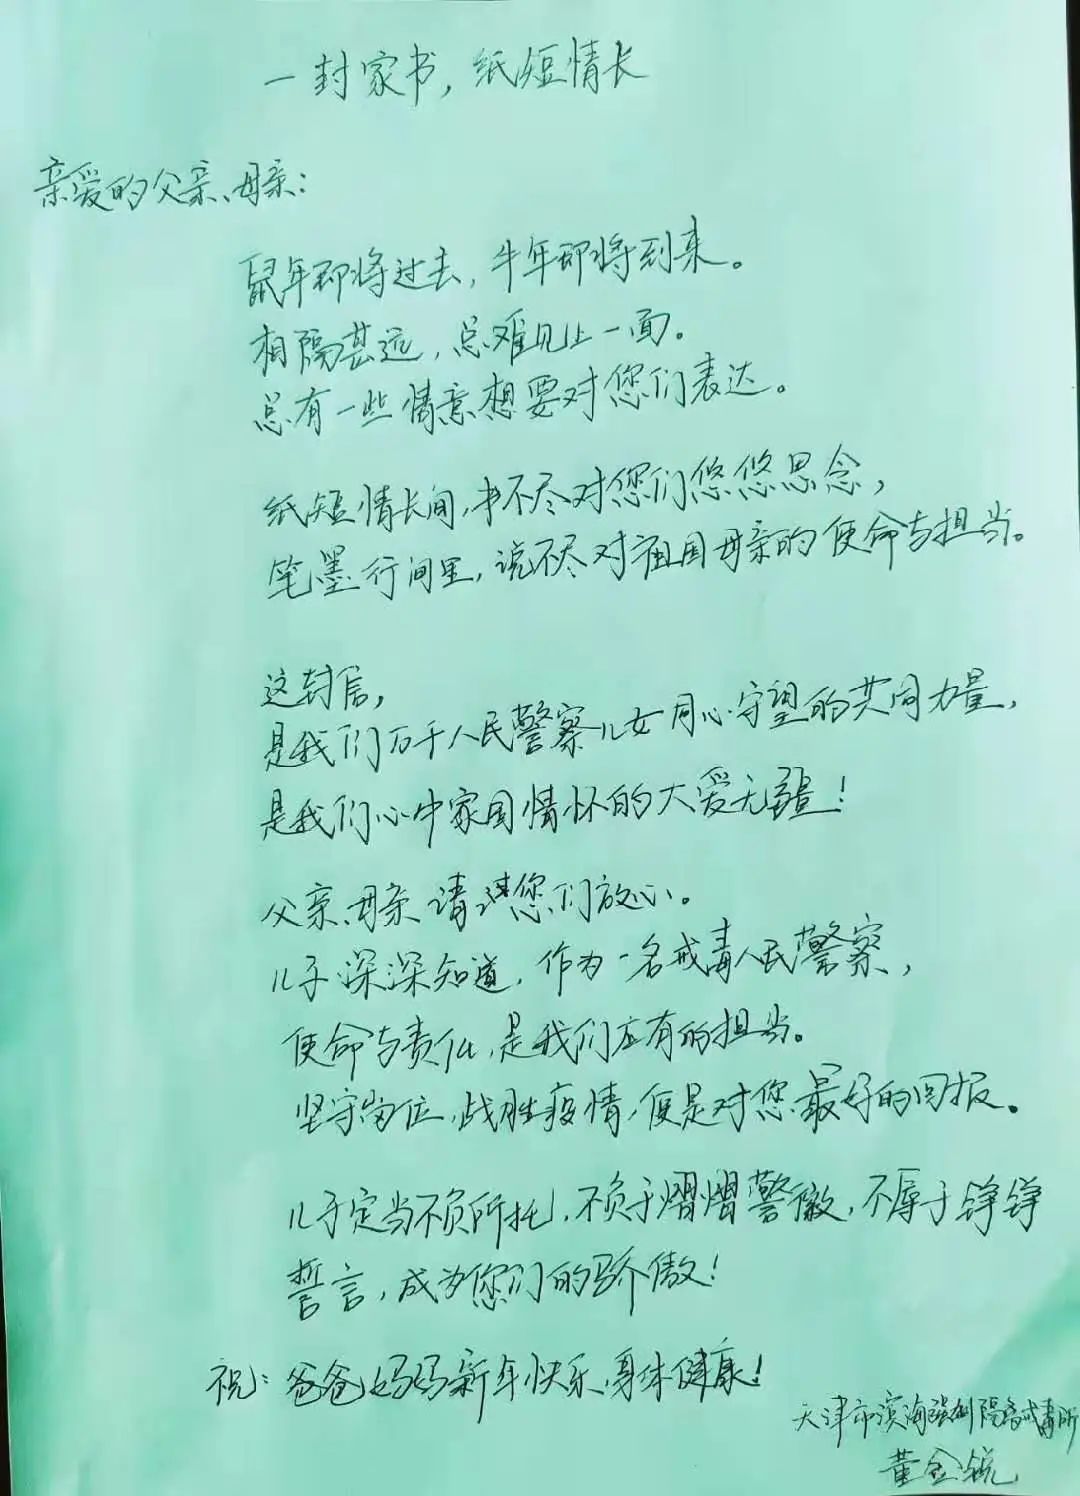 一封家书，纸短情长
亲爱的父亲、母亲：
鼠年即将过去，牛年即将到来。
相隔甚远，总难见上一面。
总有一些情意想要对您们表达。
纸短情长间，书不尽对您们悠悠思念，
笔墨行间里，说不尽对祖国母亲的使命与担当。
这封信，
是我们万千人民警察儿女同心守望的共同力量，
是我们心中家国情怀的大爱无疆！
父亲、母亲请您们放心。
儿子深深知道，作为一名戒毒人民警察，
使命与责任，是我们应有的担当。
坚守岗位，战胜疫情，便是对您最好的回报。
儿子定当不负所托，不负于熠熠警徽，不辱于铮铮
誓言，成为您们的骄傲！
祝：爸爸、妈妈新年快乐、身体健康！
天津市滨海强制隔离戒毒所
黄金锐